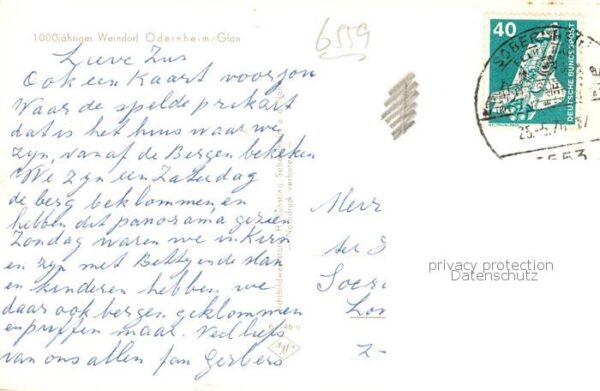 1000jähriges Weindorf Odernheim/Glan
6559
Lieve Zus
Ook een Kaart voor jou
Waar de spelde prik art
dat is het huis waar we
zyn, vanaf de Bergen bekeken
We zyn een Zaterdag
de berg beklommen, en
hebben dit panorama gezien
Zondag waren we in Kirn
en zyn met Betty en de
en kinderen hebben we
daar ook bergen geklommen
en puffen maar. Veel liefs
van ons allen fam Gerbers
Mevr
ter
Soer
Lon
Z-
40
DEUTSCHE BUNDESPOST
6553
Nachdruck verboten
privacy protection
Datenschutz